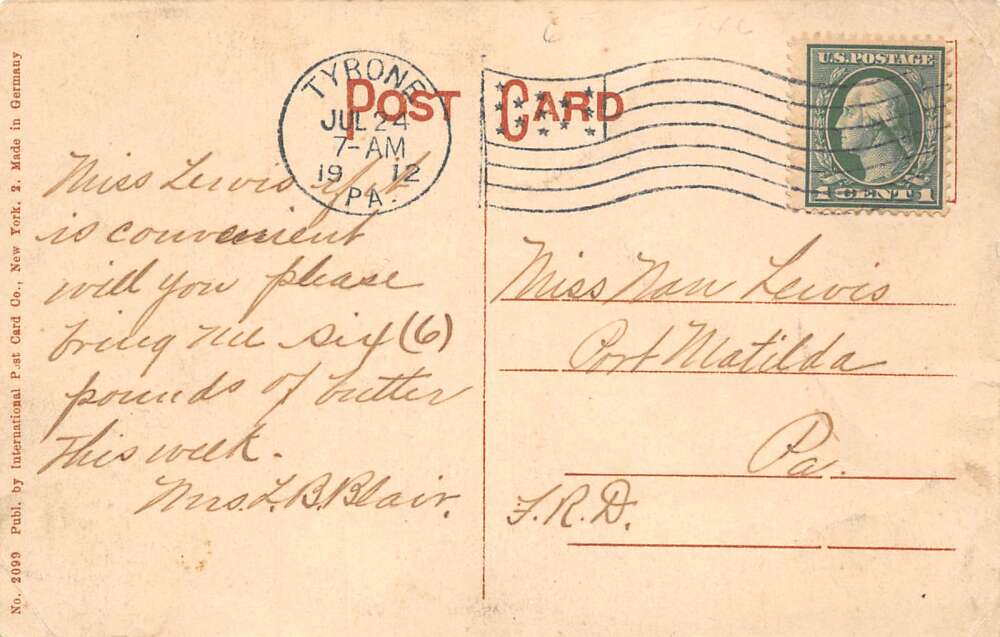 POST CARD
TYRONE
JUL 24
7-AM
19 12
PA.
U.S. POSTAGE
1 CENT 1
Miss Lewis if it
is convenient
will you please
bring me six (6)
pounds of butter
This week.
Mrs. L. B. Blair.
Miss Nan Lewis
Port Matilda
Pa.
F.R.D.
No. 2099 Publ. by International Post Card Co., New York. 2. Made in Germany